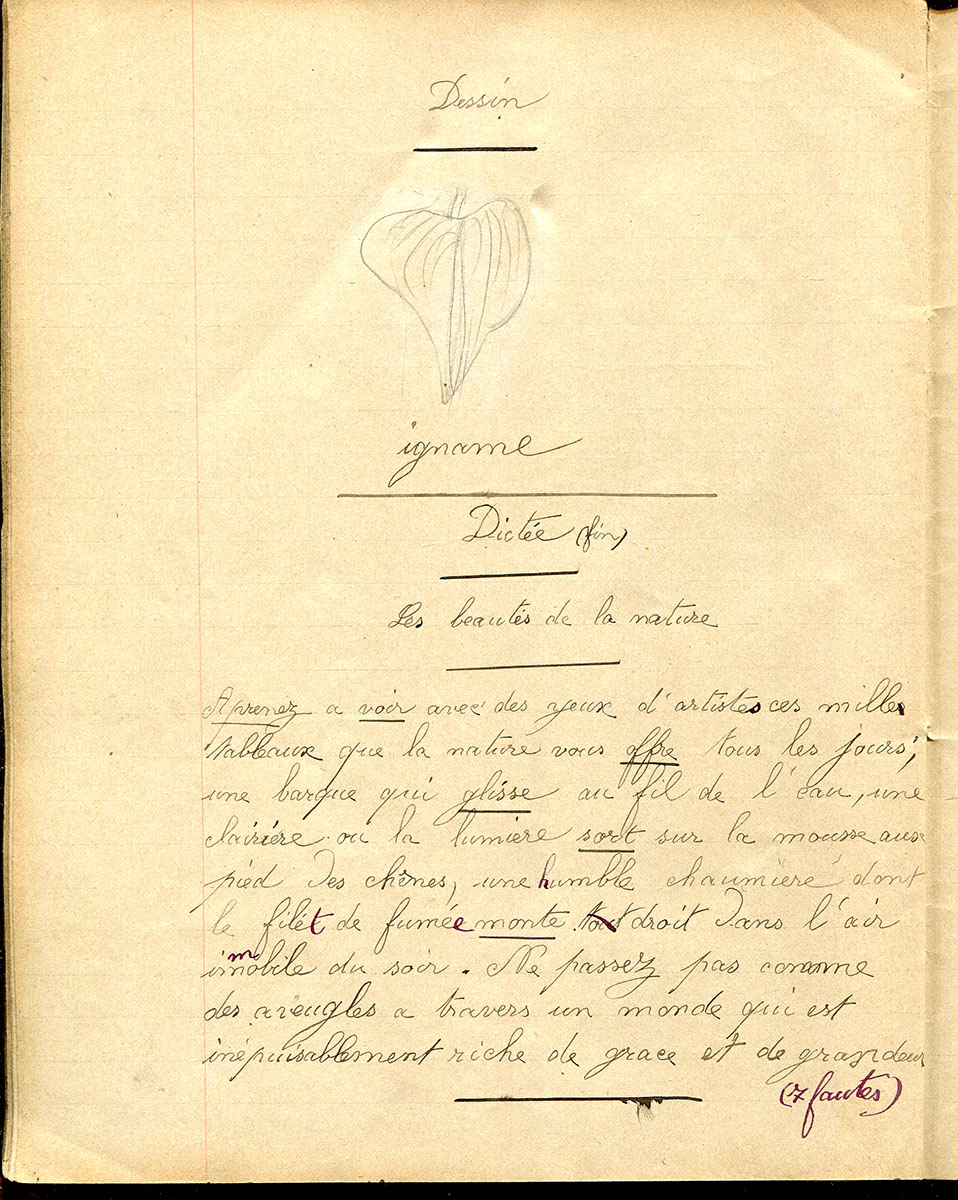 Dessin
igname
Dictée (fin)
Les beautés de la nature
Aprenez a voir avec des yeux d'artistes ces milles
tableaux que la nature vous offre tous les jours;
une barque qui glisse au fil de l'eau, une
clairière ou la lumière sort sur la mousse aux
pied des chênes, une humble chaumière dont
le filet de fumée monte tout droit dans l'air
immobile du soir. Ne passez pas comme
des aveugles a travers un monde qui est
inépuisablement riche de grace et de grandeur
(7 fautes)